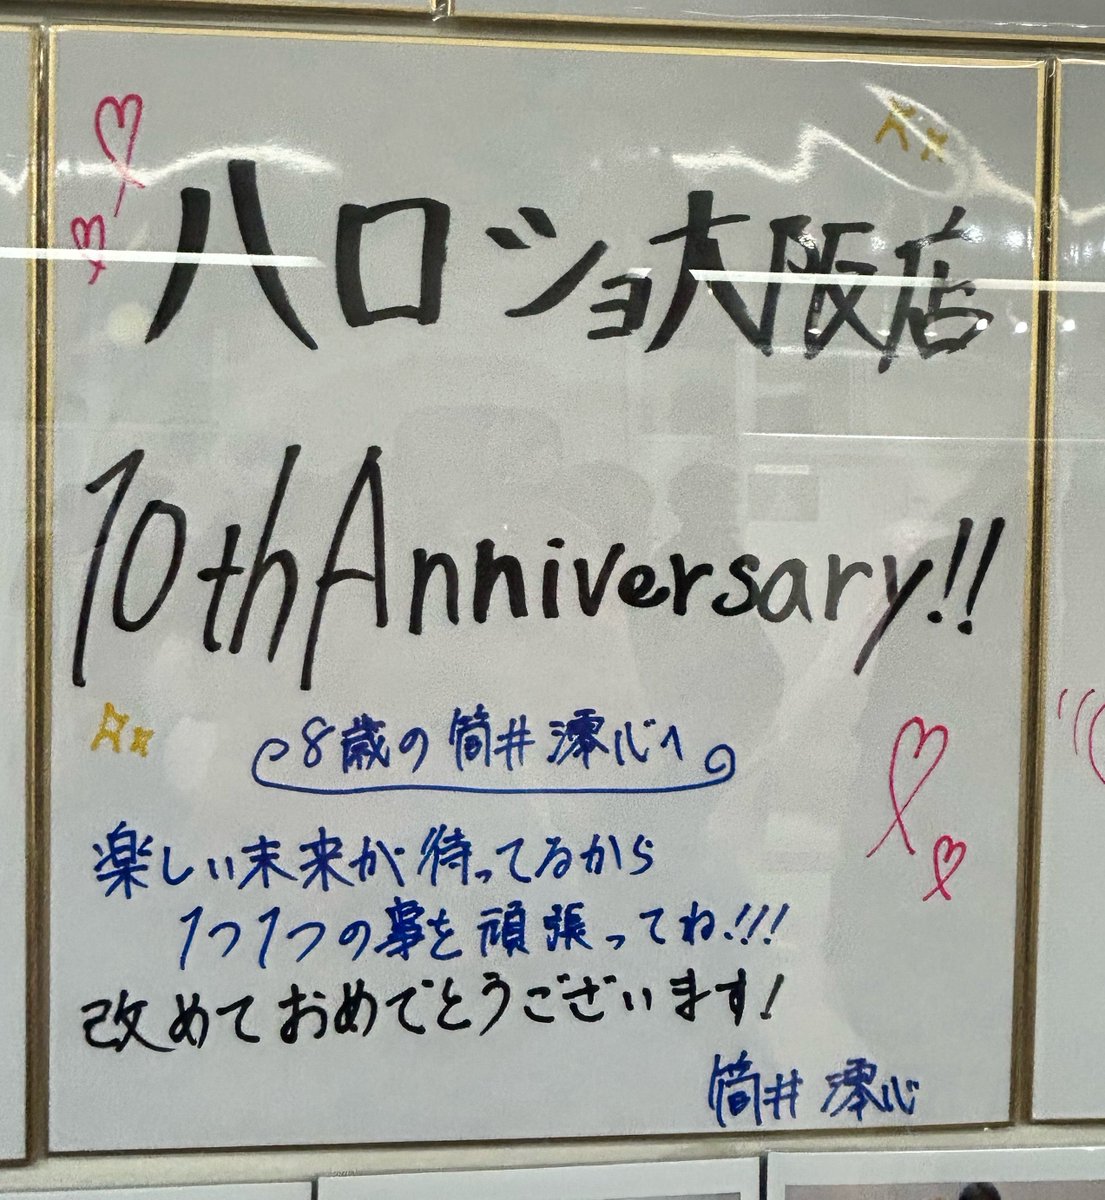 ハロショ大阪店
10th Anniversary!!
8歳の筒井澪心へ
楽しい未来が待ってるから
1つ1つの事を頑張ってね!!!
改めておめでとうございます!
筒井 澪心